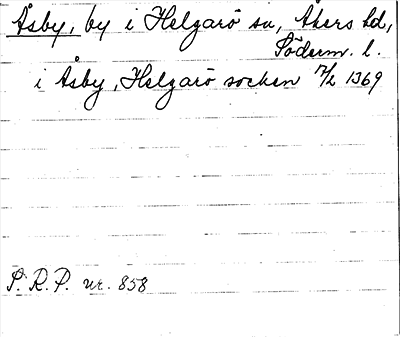 Åsby, by i Helgarö sn, Åkers hd,
Söderm. l.
i Åsby, Helgarö socken 17/2 1369
S.R.P. nr. 858